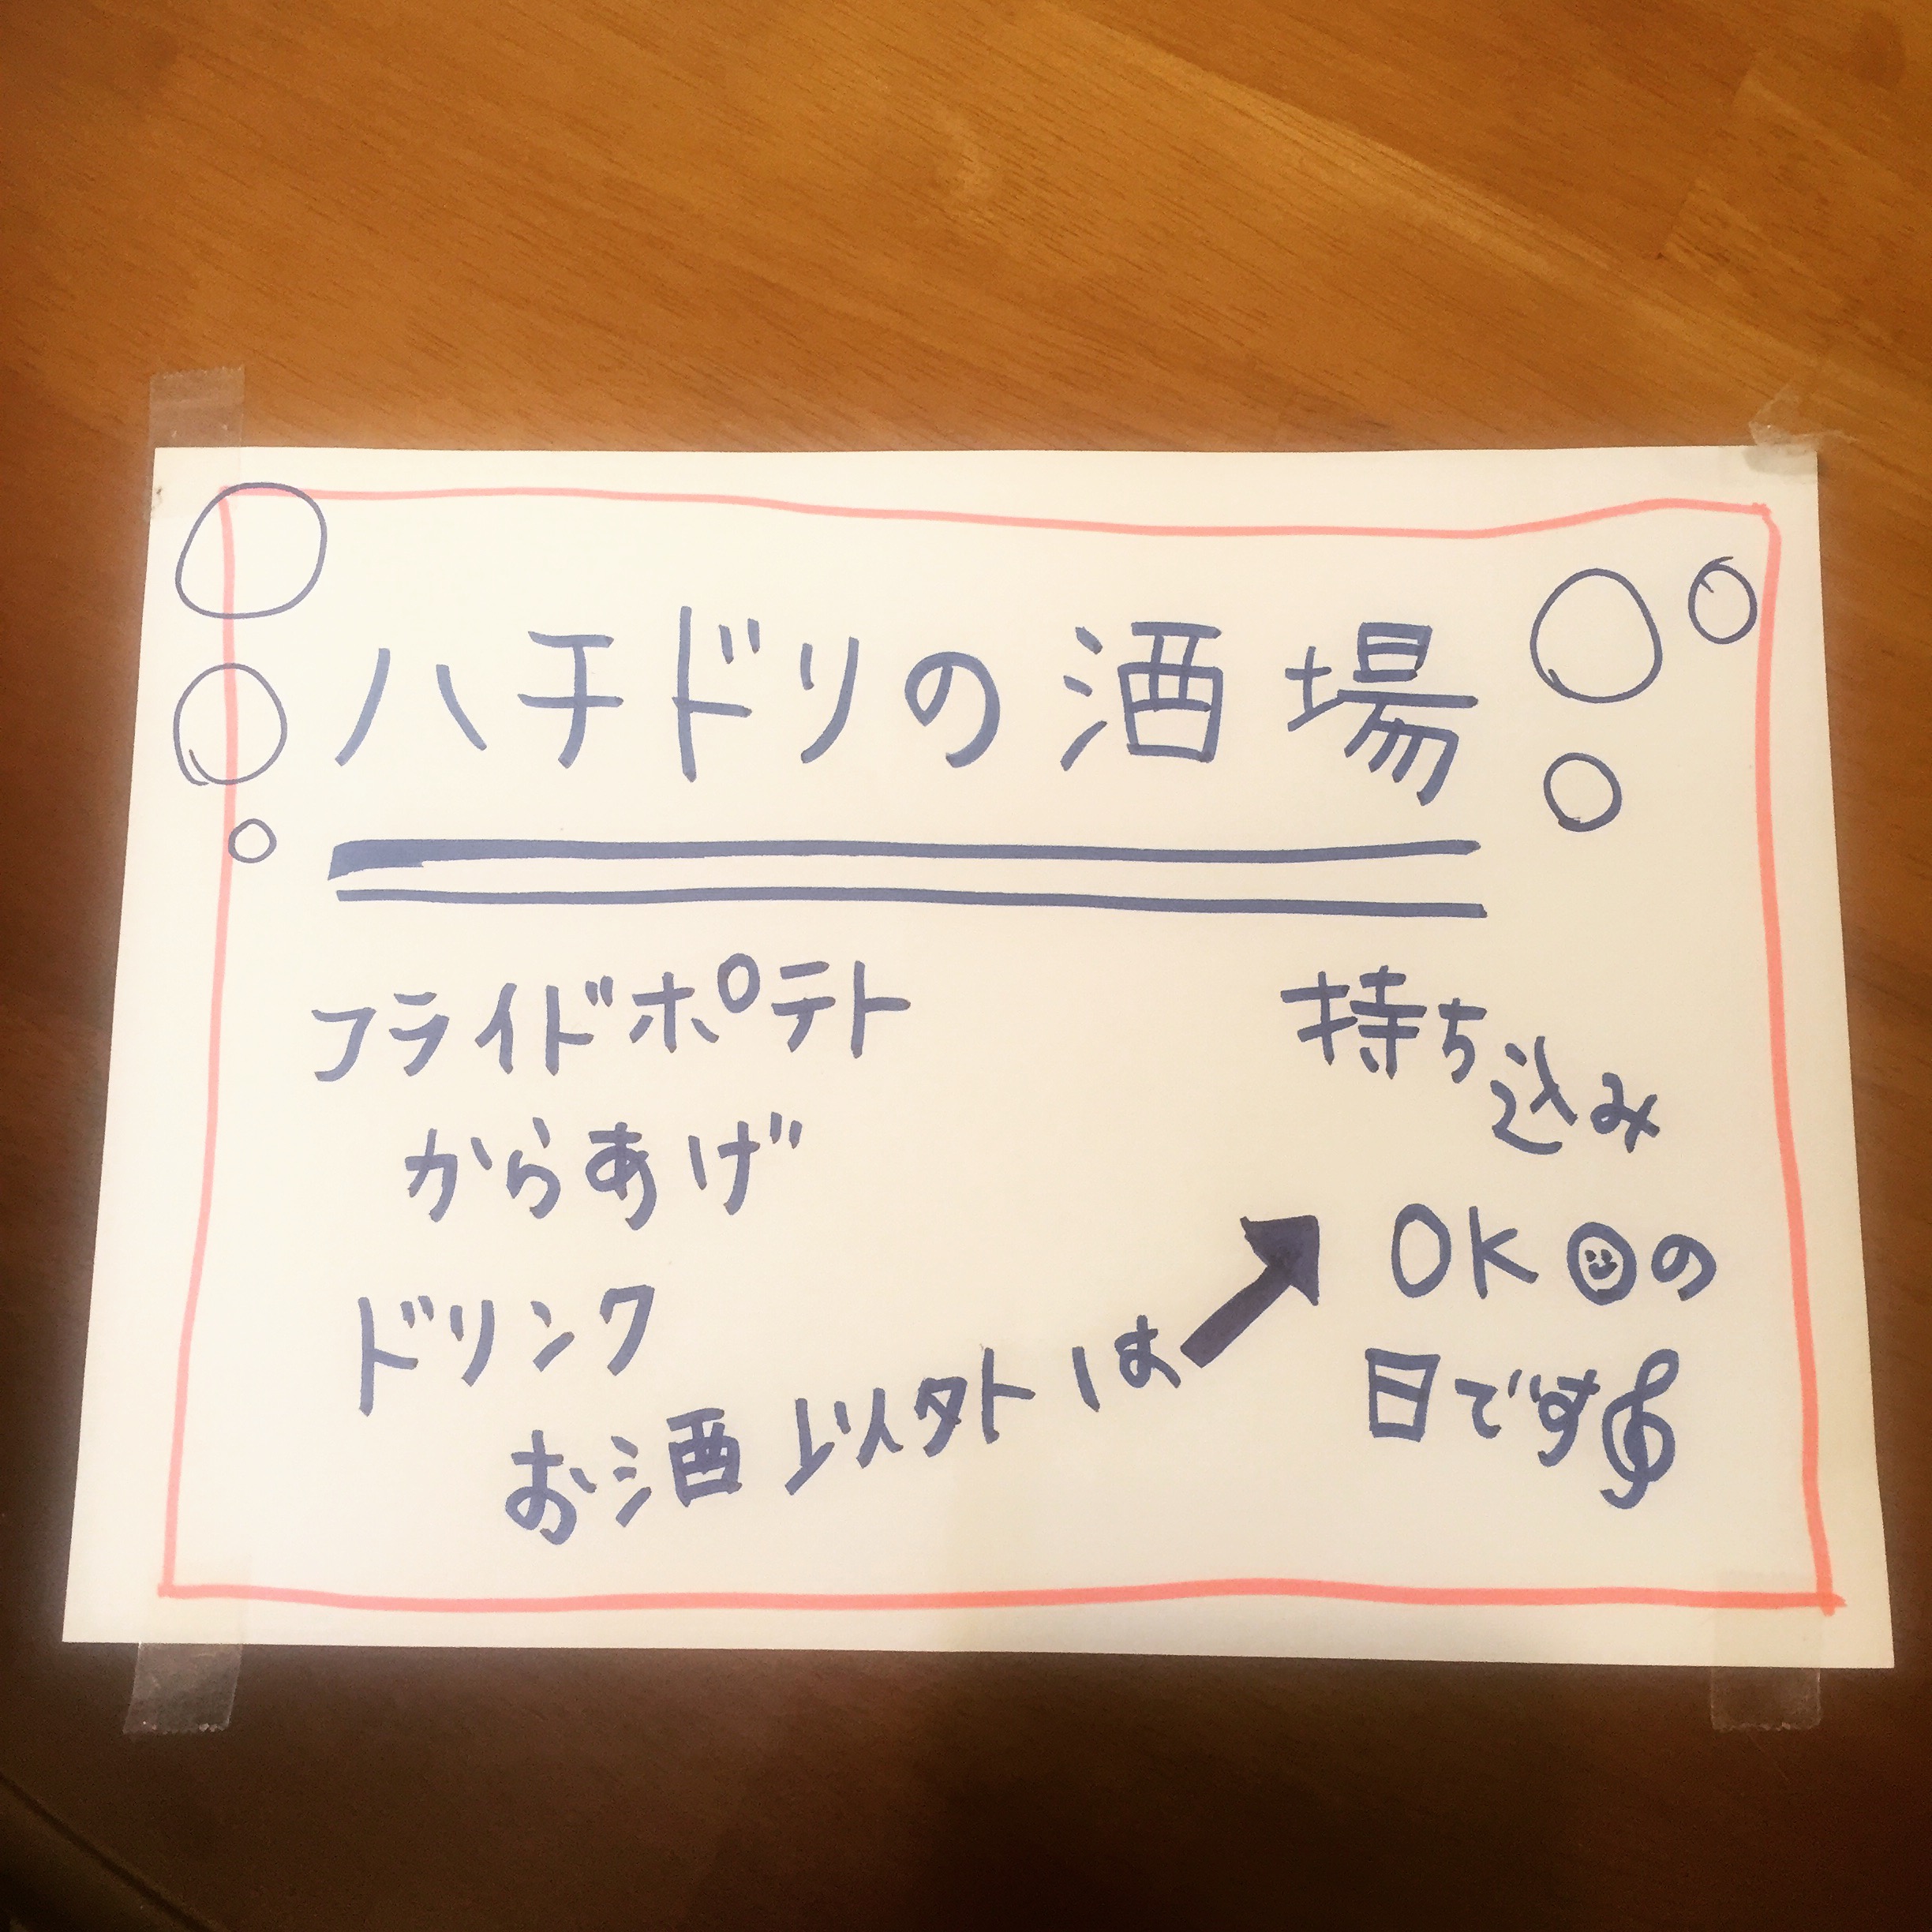 ハチドリの酒場
フライドポテト
からあげ
ドリンク
お酒以外は
持ち込み
OKの
日です